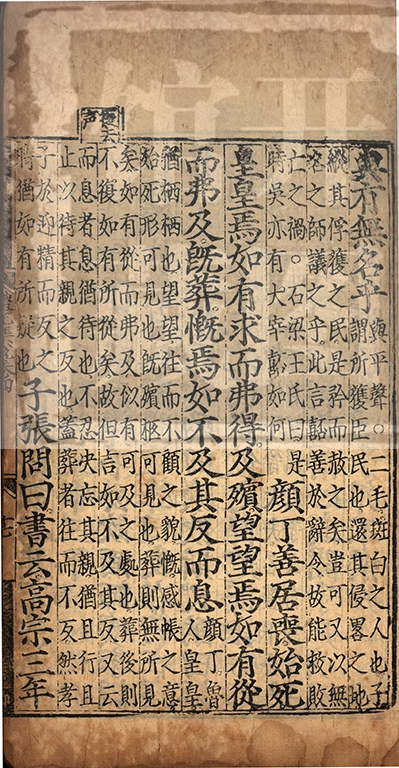 與有無名乎
與平聲。二毛斑白之人也子
謂所獲臣民也還其侵畧之地
縱其俘獲之民是矜而赦之矣豈可又以無
名之師議之乎此言嚭善於辭令故能救敗
亡之禍。石梁王氏曰是
時吳亦有大宰嚭如何
顏丁善居喪始死
皇皇焉如有求而弗得及殯望望焉如有從
而弗及既葬慨焉如不及其反而息
顏丁魯
人皇皇
猶栖栖也望望往而不顧之貌慨感悵之意
始死形可見也既殯柩可見也葬則無所見
矣如有從而弗及似有可及之處也葬後則
不復如有所從矣故但言如不及其反又云
復去
声
而息者息猶待也不忍決忘其親猶且行且
止以待其親之反也蓋葬者往而不反然孝
子於迎精而反之
時猶如有所疑也
子張問曰書云高宗三年